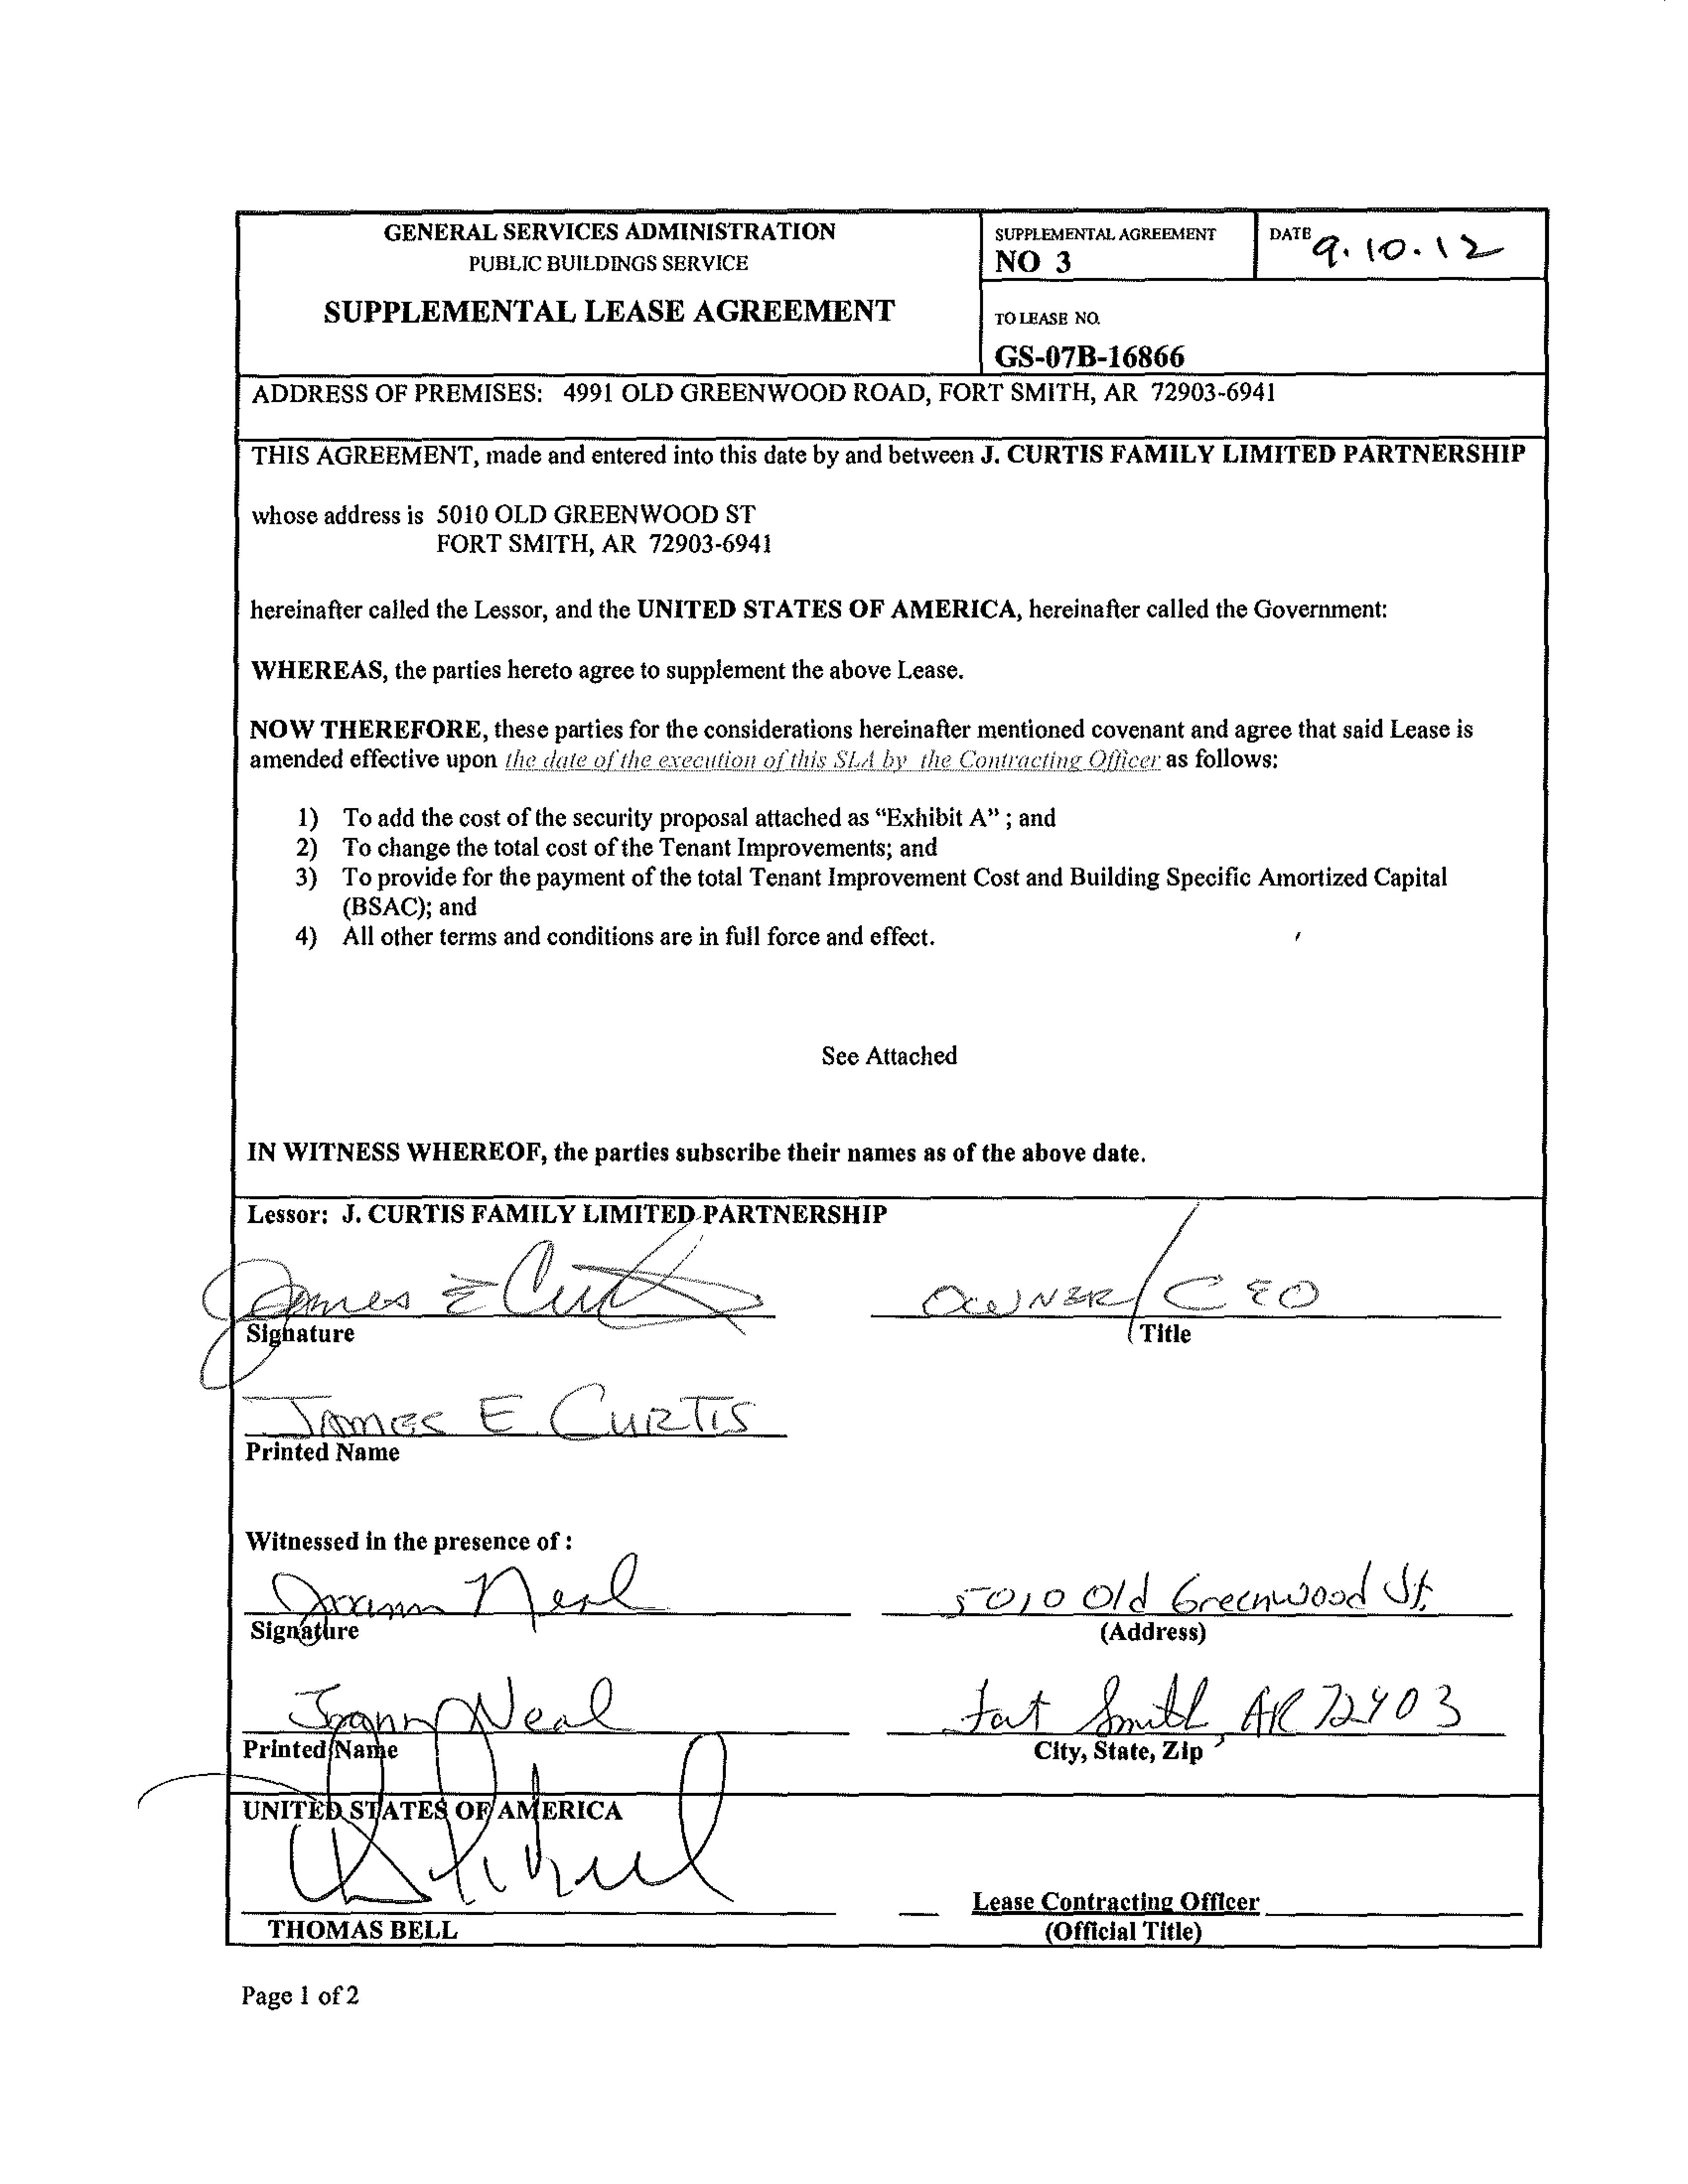 GENERAL SERVICES ADMINISTRATION
PUBLIC BUILDINGS SERVICE
SUPPLEMENTAL LEASE AGREEMENT
SUPPLEMENTAL AGREEMENT
NO 3
DATE 9.10.12
TO LEASE NO.
GS-07B-16866
ADDRESS OF PREMISES: 4991 OLD GREENWOOD ROAD, FORT SMITH, AR 72903-6941
THIS AGREEMENT, made and entered into this date by and between J. CURTIS FAMILY LIMITED PARTNERSHIP
whose address is 5010 OLD GREENWOOD ST
FORT SMITH, AR 72903-6941
hereinafter called the Lessor, and the UNITED STATES OF AMERICA, hereinafter called the Government:
WHEREAS, the parties hereto agree to supplement the above Lease.
NOW THEREFORE, these parties for the considerations hereinafter mentioned covenant and agree that said Lease is
amended effective upon the date of the execution of this SLA by the Contracting Officer as follows:
1) To add the cost of the security proposal attached as “Exhibit A” ; and
2) To change the total cost of the Tenant Improvements; and
3) To provide for the payment of the total Tenant Improvement Cost and Building Specific Amortized Capital
(BSAC); and
4) All other terms and conditions are in full force and effect.
See Attached
IN WITNESS WHEREOF, the parties subscribe their names as of the above date.
Lessor: J. CURTIS FAMILY LIMITED PARTNERSHIP
James E Curtis OWNER/CEO
Signature Title
JAMES E. CURTIS
Printed Name
Witnessed in the presence of :
Joann Neal 5010 Old Greenwood St.
Signature (Address)
Joann Neal Fort Smith, AR 72903
Printed Name City, State, Zip
UNITED STATES OF AMERICA
Lease Contracting Officer
THOMAS BELL (Official Title)
Page 1 of 2